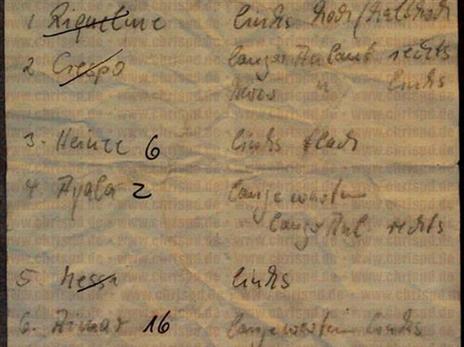 1. Riquelme links hoch/halbhoch
2. Crespo langer Anlauf rechts
kurz " links
3. Heinze 6 links flach
4. Ayala 2 lange warten
langer Anl. rechts
5 Messi links
6. Aimar 16 lange warten links